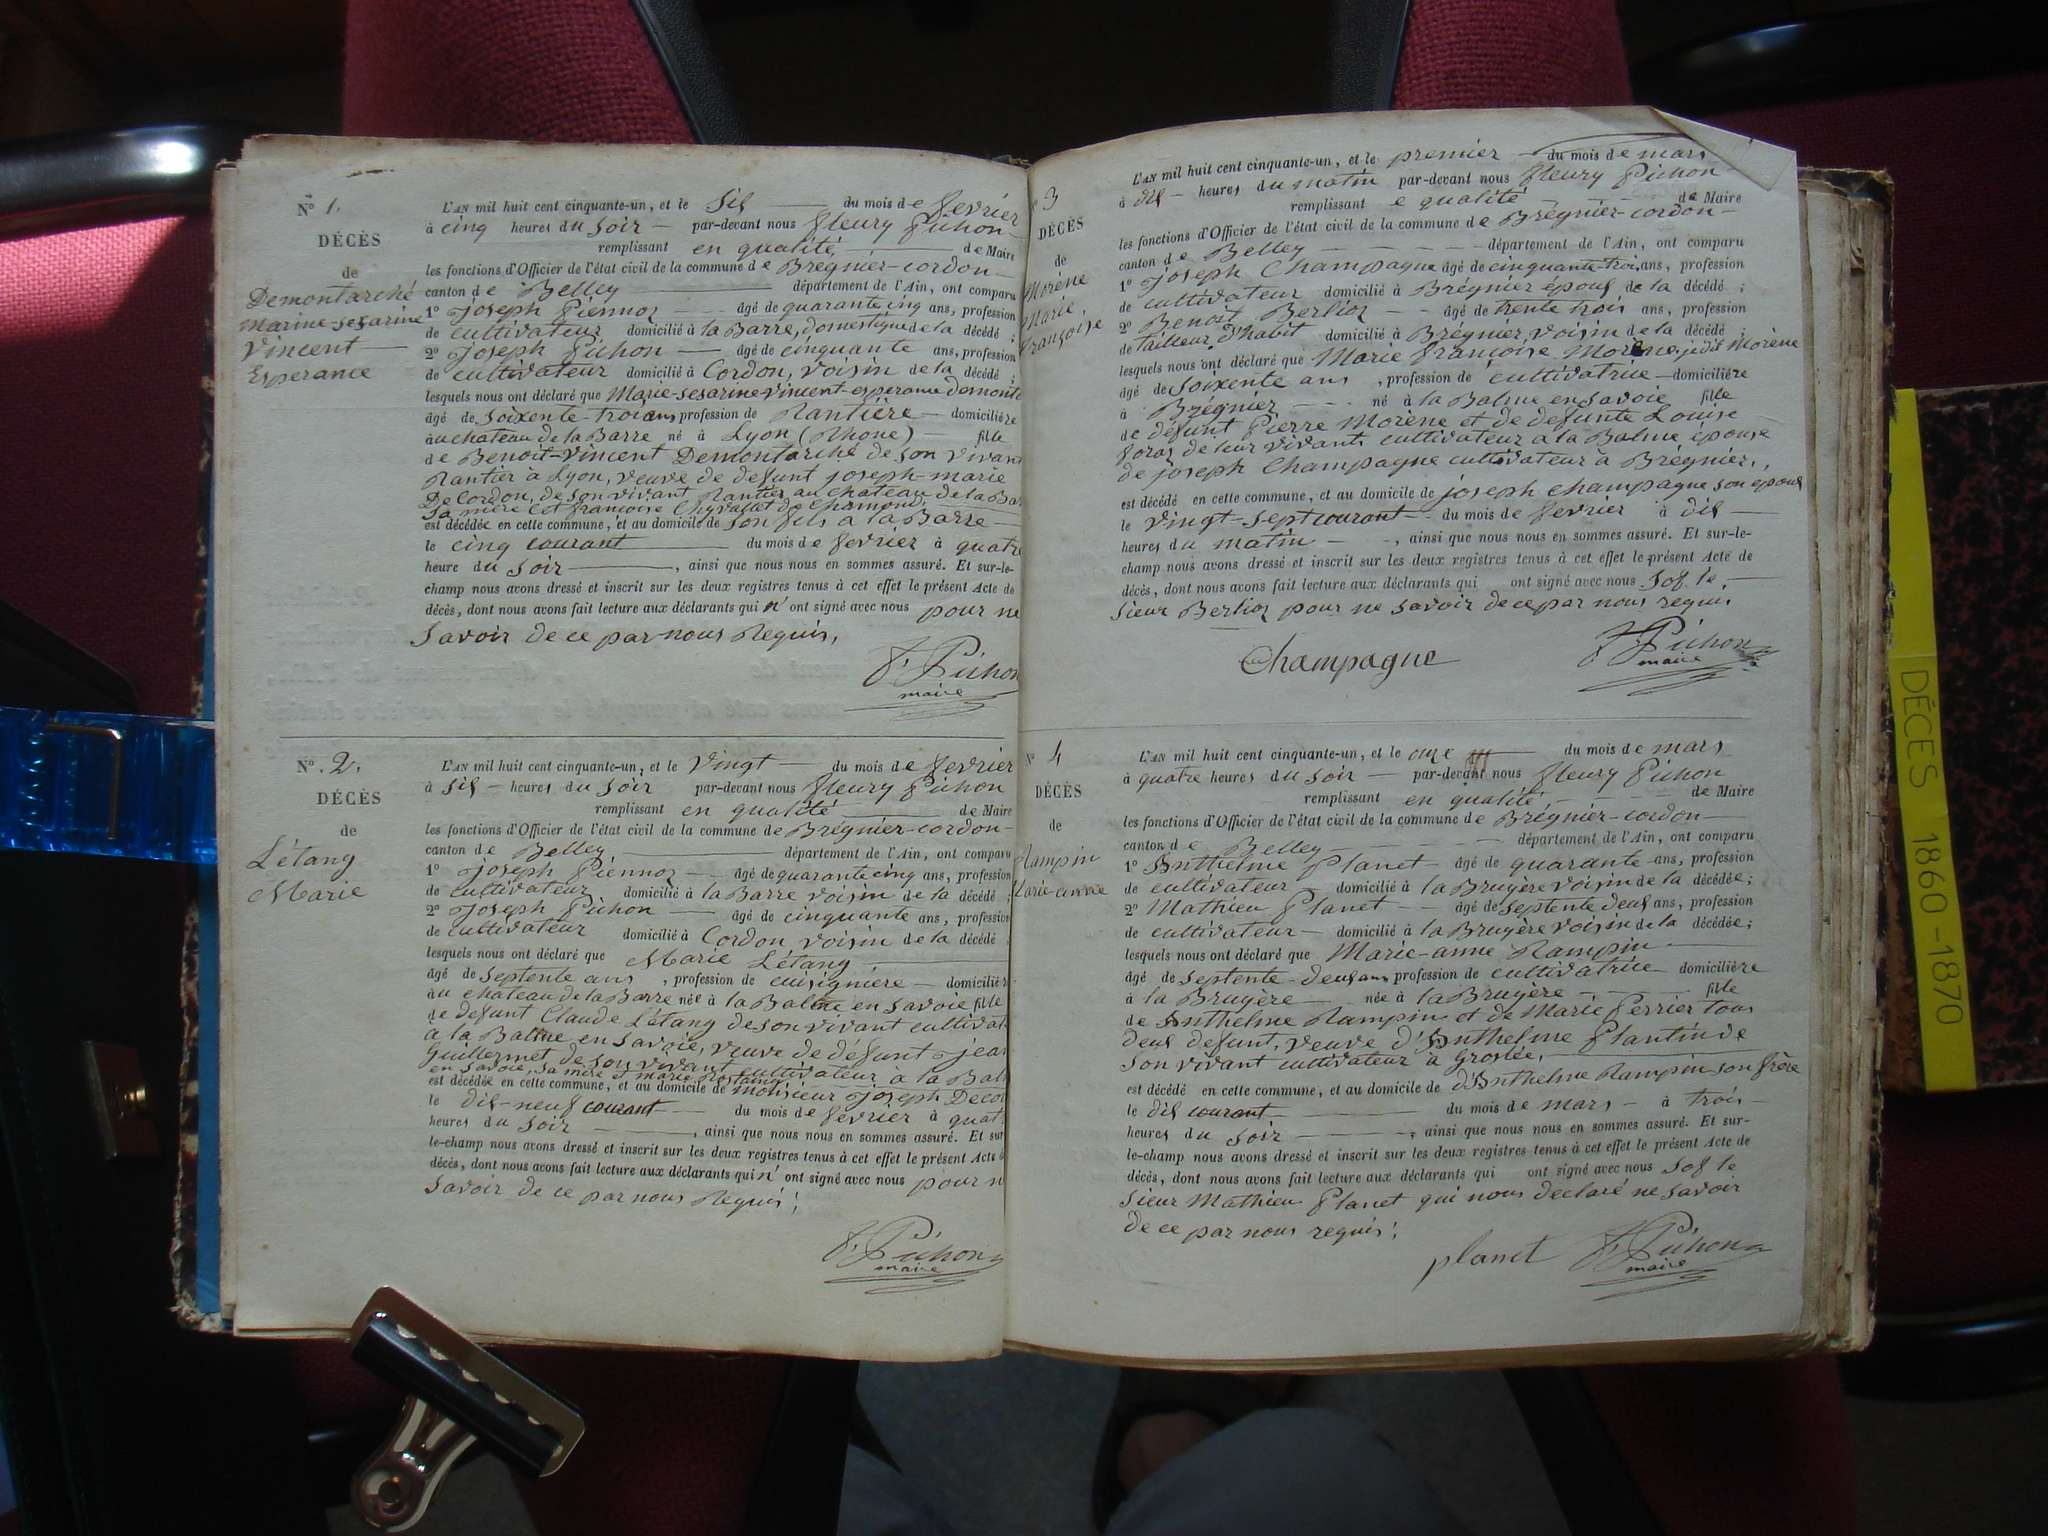 N° 1.
DÉCÈS
de
Demontarché
Marine-sesarine
Vincent
Esperance
L'AN mil huit cent cinquante-un, et le Six du mois de fevrier
à cinq heures du soir par-devant nous fleury Pichon
remplissant en qualité de Maire
les fonctions d'Officier de l'état civil de la commune de Brégnier-cordon
canton de Belley département de l'Ain, ont comparu
1° Joseph Piennoz âgé de quarante cinq ans, profession
de cultivateur domicilié à la Barre, domestique de la décédé ;
2° Joseph Pichon âgé de cinquante ans, profession
de cultivateur domicilié à Cordon, voisin de la décédé ;
lesquels nous ont déclaré que Marie-sesarine vincent-esperance
âgé de soixente-trois ans profession de Rantière domicilière
au chateau de la Barre né à Lyon (Rhone) fille
de Benoit-Vincent Demontarché de son vivant
Rantier à Lyon, veuve de defunt joseph-marie
De Cordon, de son vivant Rantier au chateau de la Bar
Sa mère est françoise de Chamond
est décédée en cette commune, et au domicile de son fils a la Barre
le cinq courant du mois de fevrier à quatre
heure du soir , ainsi que nous nous en sommes assuré. Et sur-le-
champ nous avons dressé et inscrit sur les deux registres tenus à cet effet le présent Acte de
décès, dont nous avons fait lecture aux déclarants qui n' ont signé avec nous pour ne
savoir de ce par nous Requis.
F. Pichon
maire
N° 2.
DÉCÈS
de
Létang
Marie
L'AN mil huit cent cinquante-un, et le Vingt du mois de fevrier
à six heures du soir par-devant nous fleury Pichon
remplissant en qualité de Maire
les fonctions d'Officier de l'état civil de la commune de Brégnier-cordon
canton de Belley département de l'Ain, ont comparu
1° Joseph Piennoz âgé de quarante cinq ans, profession
de cultivateur domicilié à la Barre voisin de la décédé ;
2° Joseph Pichon âgé de cinquante ans, profession
de cultivateur domicilié à Cordon voisin de la décédé ;
lesquels nous ont déclaré que Marie Létang
âgé de septente ans , profession de cuisignière domicilière
au chateau de la Barre née à la Balme en Savoie fille
de defunt Claude Létang de son vivant cultivat
à la Balme en Savoie, veuve de défunt jean
Guillermet de son vivant cultivateur à la Balm
en Savoie, sa mère marie
est décédée en cette commune, et au domicile de monsieur joseph Decor
le dix-neuf courant du mois de fevrier à quat
heures du soir , ainsi que nous nous en sommes assuré. Et sur
le-champ nous avons dressé et inscrit sur les deux registres tenus à cet effet le présent Acte d
décès, dont nous avons fait lecture aux déclarants qui n' ont signé avec nous pour n
savoir de ce par nous Requis ;
F. Pichon
maire
3
DÉCÈS
de
Morène
Marie
françoise
L'AN mil huit cent cinquante-un, et le premier du mois de mars
à dix heures du matin par-devant nous fleury Pichon
remplissant e qualité de Maire
les fonctions d'Officier de l'état civil de la commune de Brégnier-cordon
canton de Belley département de l'Ain, ont comparu
1° joseph Champagne âgé de cinquante-trois ans, profession
de cultivateur domicilié à Brégnier époux de la décédé ;
2° Benoit Berlioz âgé de trente trois ans, profession
de tailleur d'habit domicilié à Brégnier voisin de la décédé ;
lesquels nous ont déclaré que Marie françoise Morène, je dis Morène
âgé de soixente ans , profession de cultivatrice domicilière
à Brégnier né à la Balme en Savoie fille
de défunt Pierre Morène et de defunte Louise
foraz de leur vivant cultivateur à la Balme épouse
de joseph Champagne cultivateur à Brégnier,
est décédé en cette commune, et au domicile de joseph champagne son époux
le vingt-sept courant du mois de fevrier à dix
heures du matin , ainsi que nous nous en sommes assuré. Et sur-le-
champ nous avons dressé et inscrit sur les deux registres tenus à cet effet le présent Acte de
décès, dont nous avons fait lecture aux déclarants qui ont signé avec nous sof. le
sieur Berlioz pour ne savoir de ce par nous requis
Champagne
F. Pichon
maire
N° 4
DÉCÈS
de
Rampin
Marie-anne
L'AN mil huit cent cinquante-un, et le onze du mois de mars
à quatre heures du soir par-devant nous fleury Pichon
remplissant en qualité de Maire
les fonctions d'Officier de l'état civil de la commune de Brégnier-cordon
canton de Belley département de l'Ain, ont comparu
1° Anthelme Planet âgé de quarante ans, profession
de cultivateur domicilié à la Bruyère voisin de la décédée ;
2° Mathieu Planet âgé de septente deux ans, profession
de cultivateur domicilié à la Bruyère voisin de la décédée ;
lesquels nous ont déclaré que Marie-anne Rampin
âgé de septente-deux ans profession de cultivatrice domicilière
à la Bruyère née à la Bruyère fille
de Anthelme Rampin et de Marie Perrier tous
deux defunt, veuve d'Anthelme Plantin de
son vivant cultivateur à Groslée,
est décédée en cette commune, et au domicile de d'Anthelme Rampin son frère
le dix courant du mois de mars à trois
heures du soir , ainsi que nous nous en sommes assuré. Et sur-
le-champ nous avons dressé et inscrit sur les deux registres tenus à cet effet le présent Acte de
décès, dont nous avons fait lecture aux déclarants qui ont signé avec nous sof le
sieur Mathieu Planet qui nous declaré ne savoir
de ce par nous requis ;
planet
F. Pichon
maire
DÉCES 1860-1870